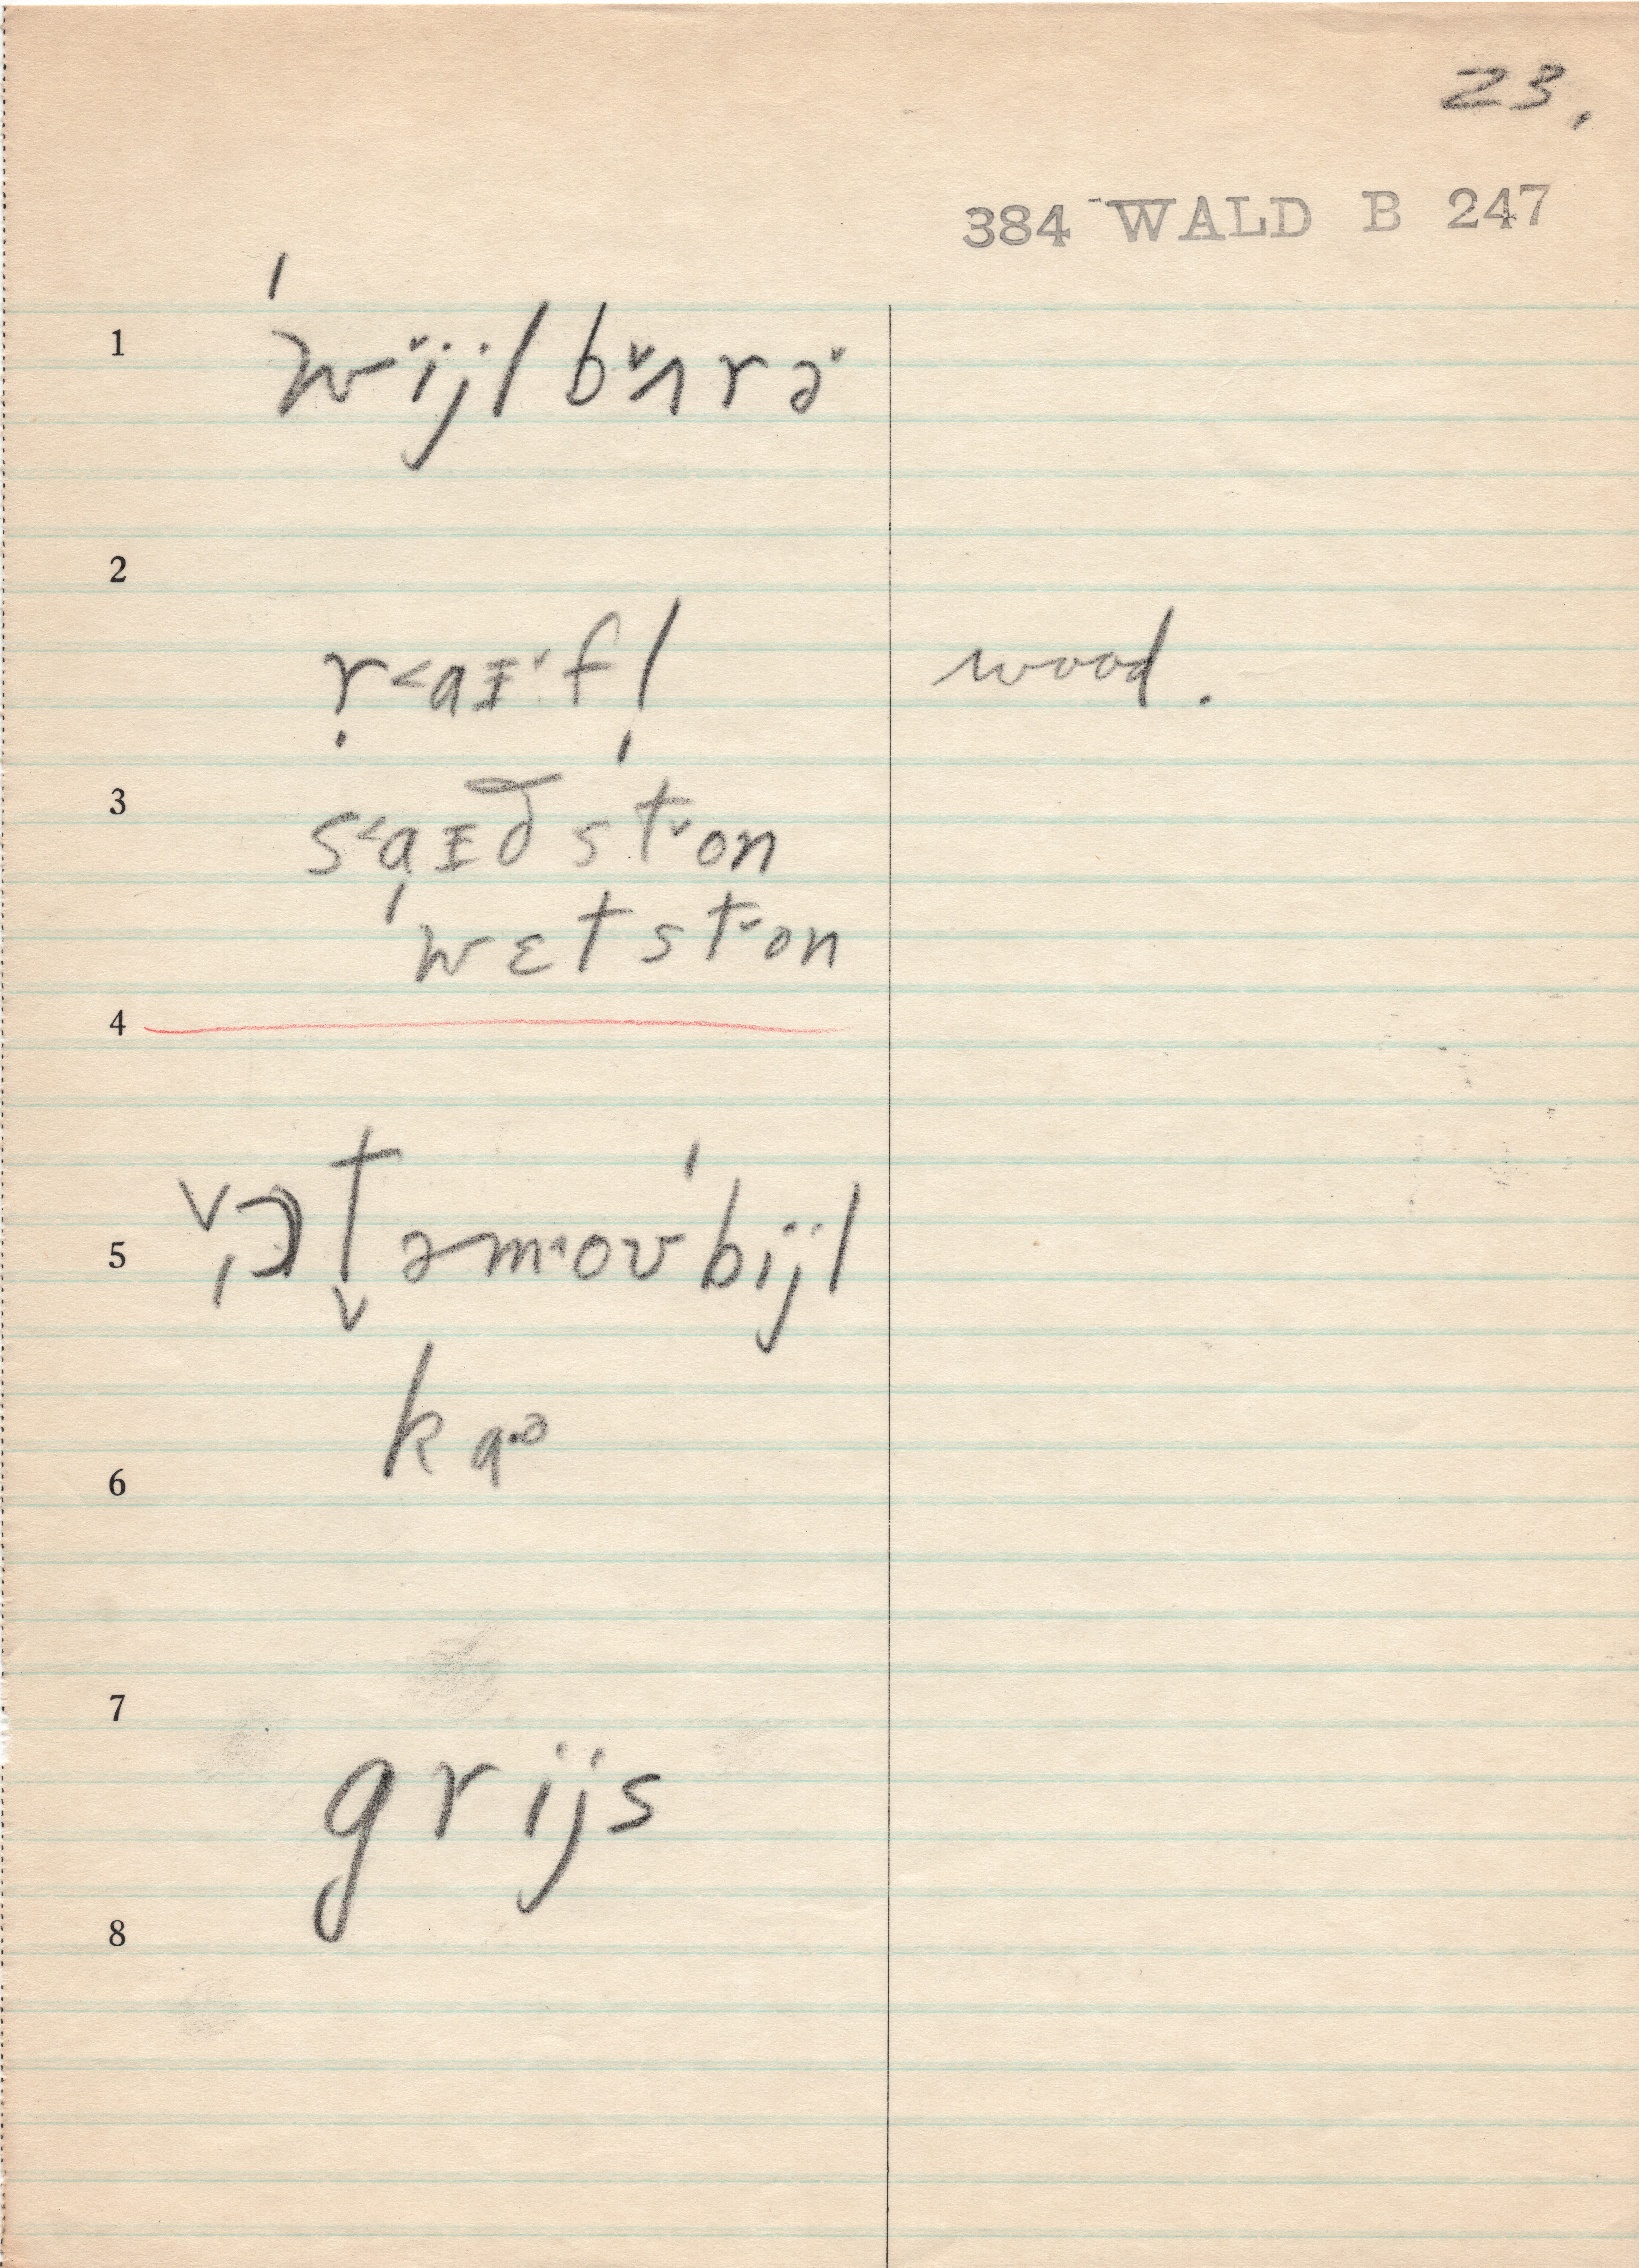 23.
384 WALD B 247
1 ˈwi˅jl bʌ˅rə˅
2
r̩<aɪ˅fl̩ wood.
3 s<aɪðst˅on
wɛtst˅on
4
5 ɔt̬əmˈoʊˈbijl
ka·ə
6
7
grijs
8